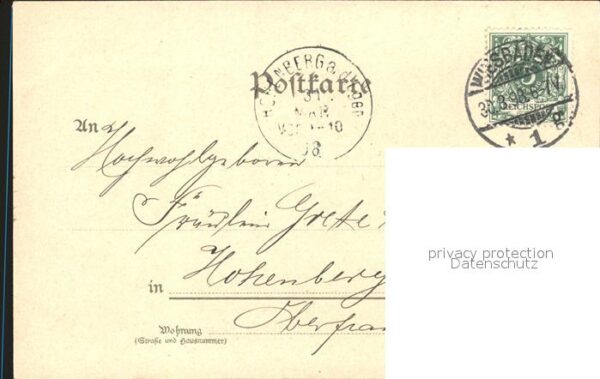 Postkarte
HOHENBERG a. d. EGER
31
MAR
98
WIESBADEN
5
REICHSPOST
* 1 g
An
Hochwohlgeboren
Fräulein Grete
in Hohenberg
Oberfra
Wohnung
(Straße und Hausnummer)
privacy protection
Datenschutz